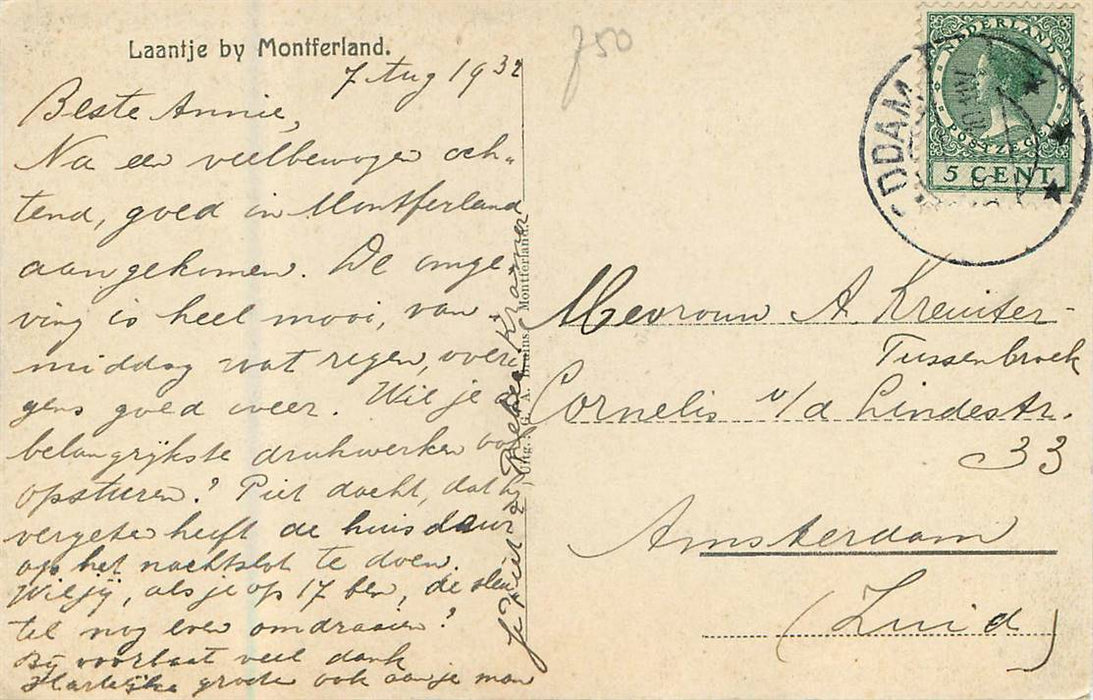 Laantje by Montferland.
7 Aug 1932
Beste Annie,
Na een veelbewogen och-
tend, goed in Montferland
aangekomen. De omge-
ving is heel mooi, van-
middag wat regen, overi-
gens goed weer. Wil je
belangrijkste drukwerken
opsturen? Piet dacht, dat hij
vergeten heeft de huisdeur
op het nachtslot te doen.
Wil jij, als je op 17 ben, de sleu
tel nog even omdraaien?
Bij voorbaat veel dank
Hartelijke groete ook aan je man
je Piet &
Uitg. G. A. Bruins, Montferland.
750
DDAM
NEDERLAND
POSTZEGEL
5 CENT
Mevrouw A. Kreuiter-
Tussenbroek
Cornelis v/d Lindestr.
33
Amsterdam
(Zuid)